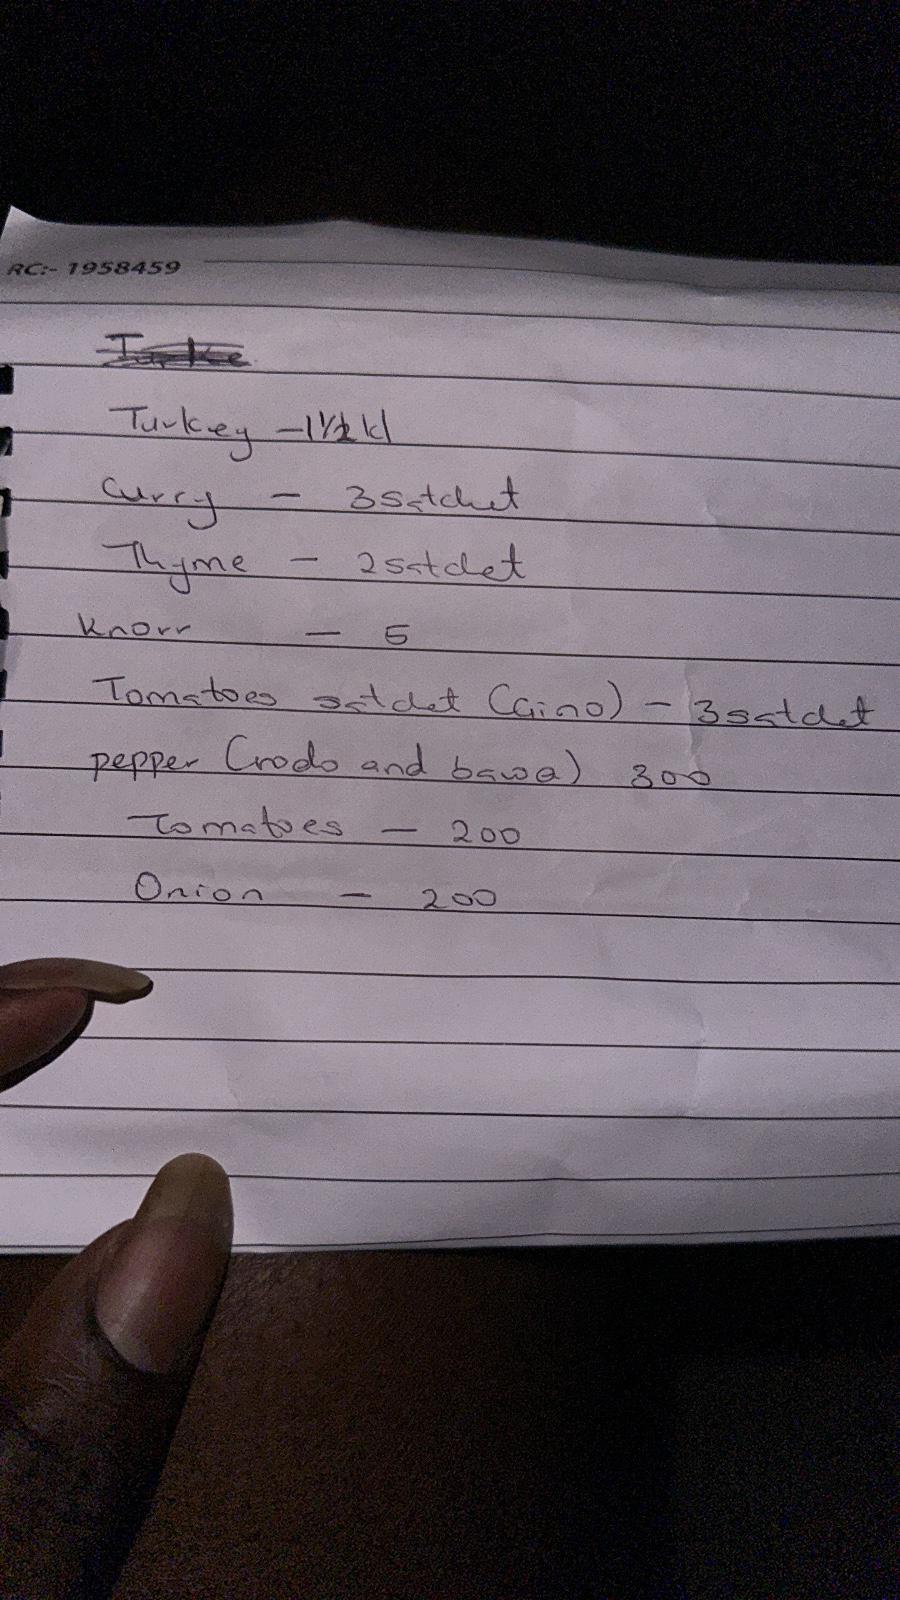 RC:- 1958459
Turke
Turkey - 1½ kl
Curry - 3 satchet
Thyme - 2 satchet
Knorr - 5
Tomatoes satchet (Gino) - 3 satchet
pepper (rodo and bawa) 300
Tomatoes - 200
Onion - 200